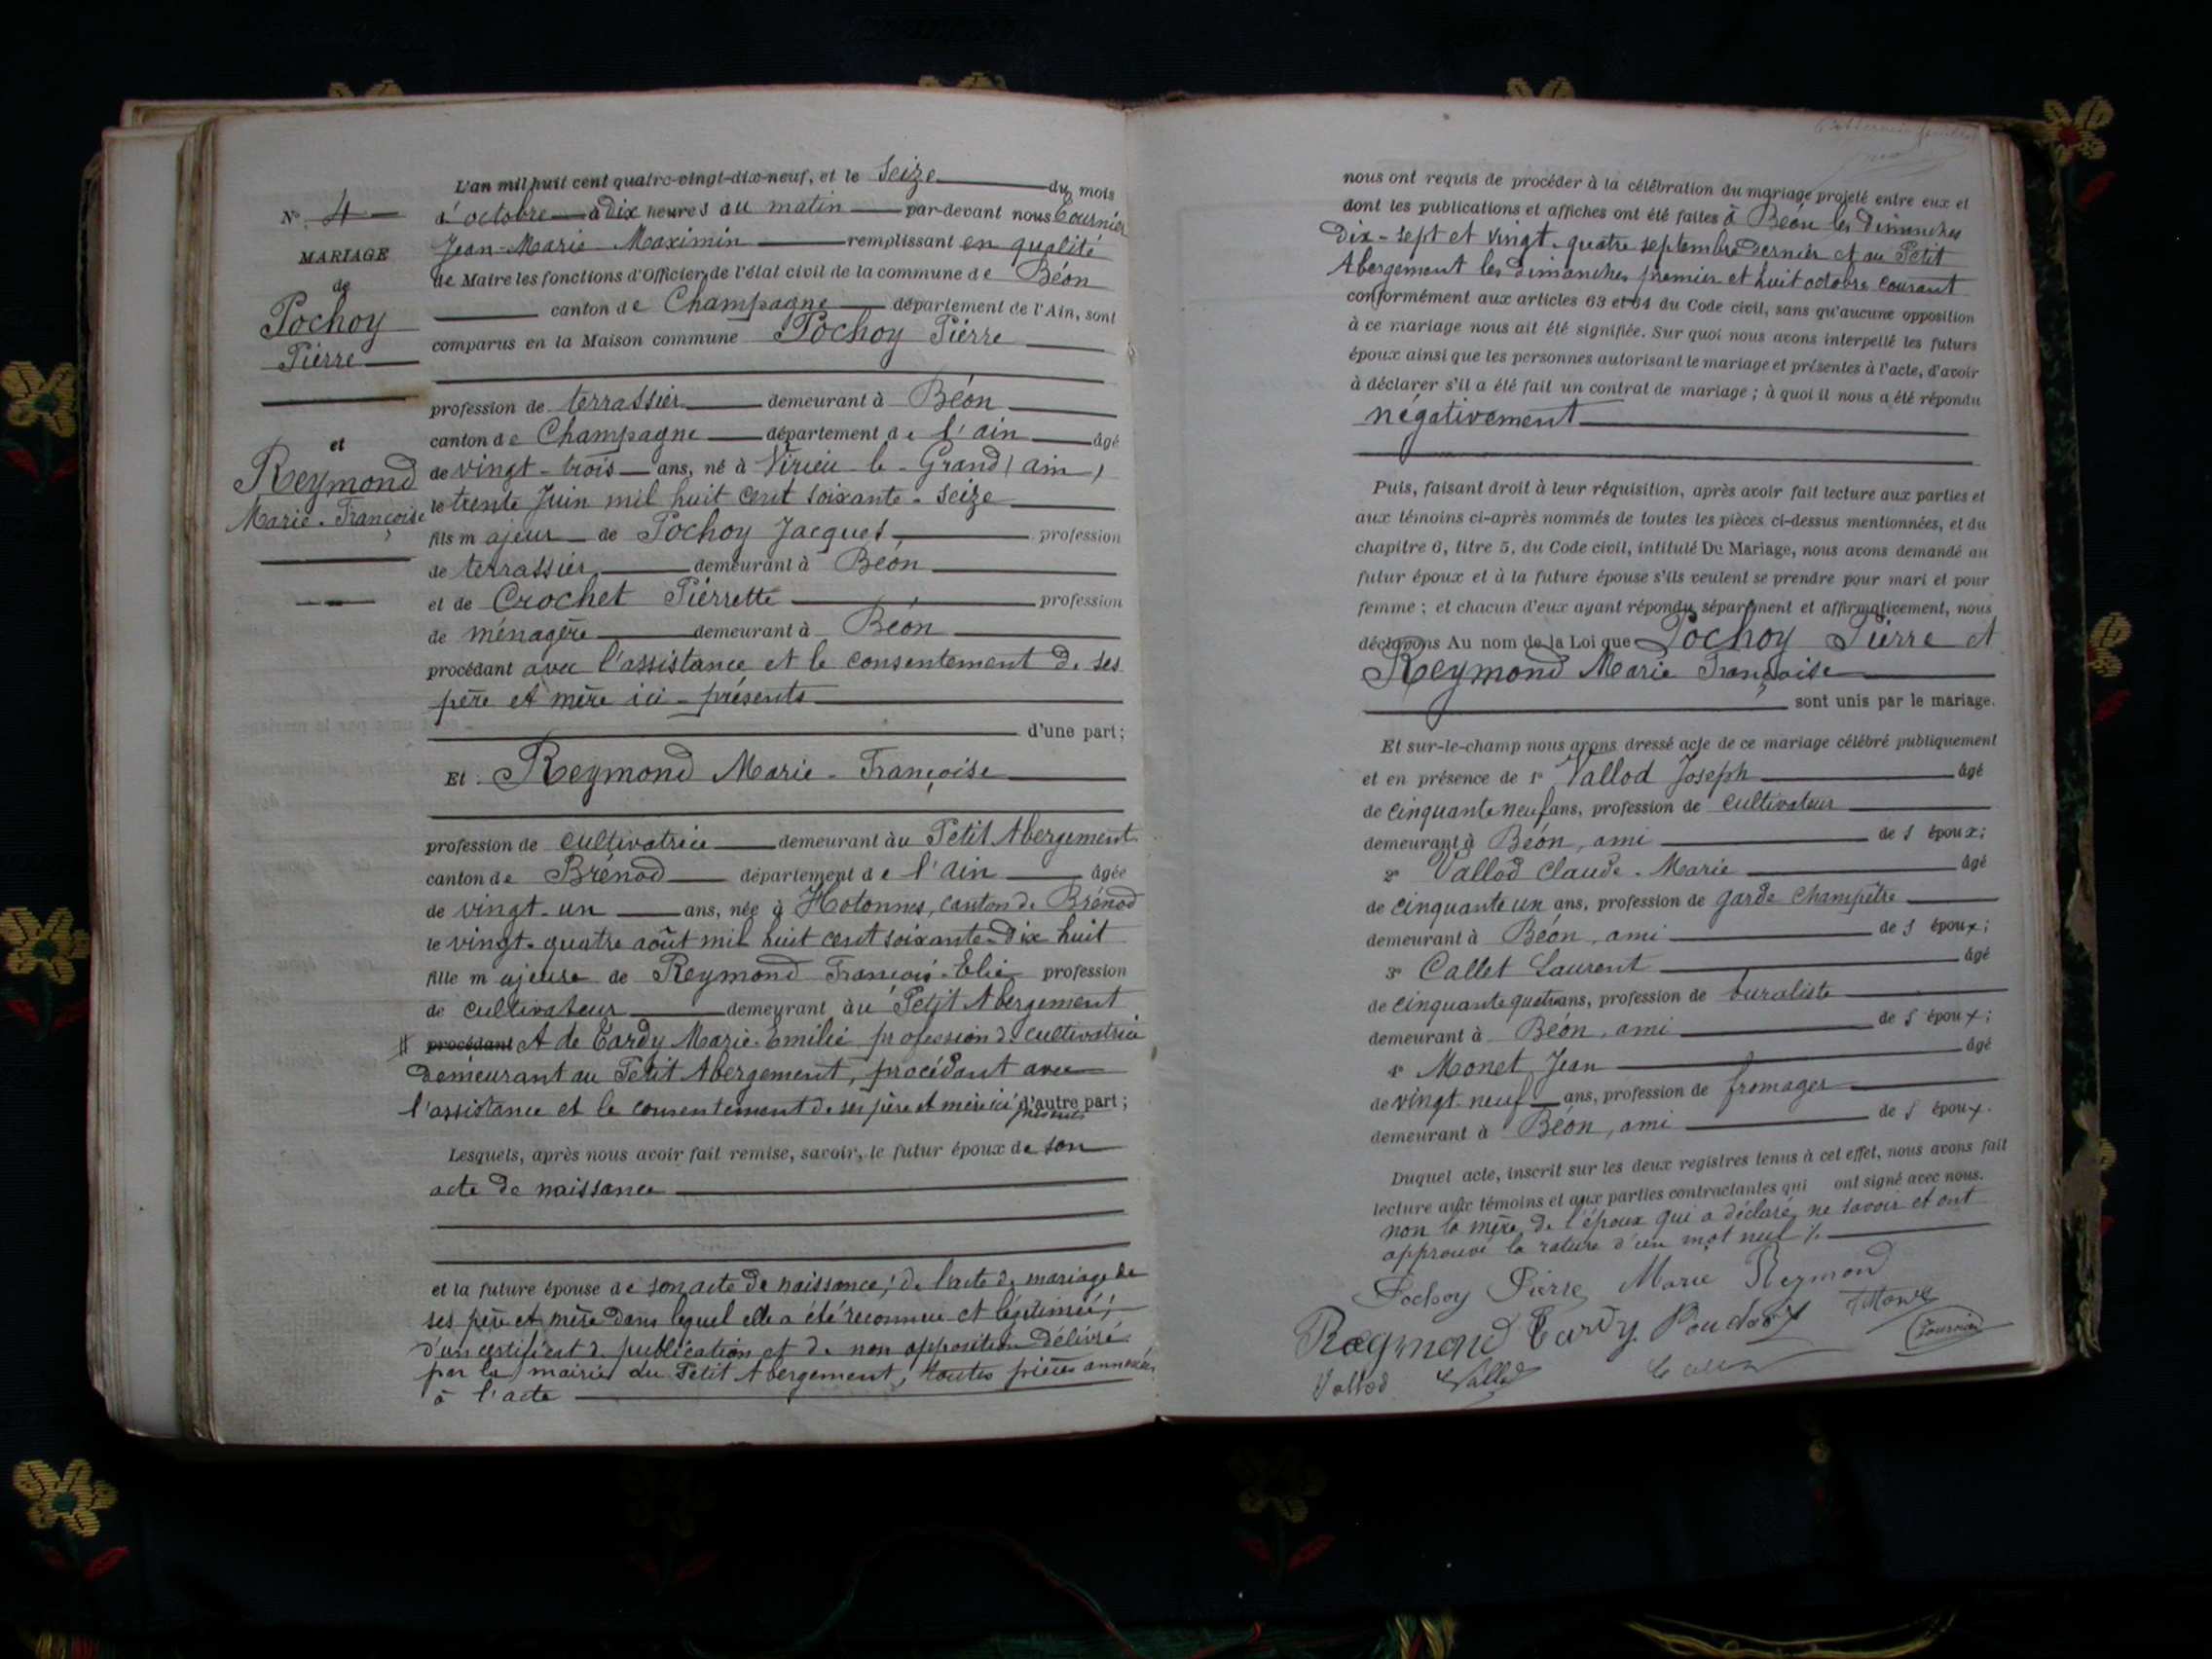 N° 4
MARIAGE
de
Pochoy
Pierre
et
Reymond
Marie-Françoise
L'an mil huit cent quatre-vingt-dix-neuf, et le Seize du mois
d'octobre à dix heures du matin par-devant nous Tournier
Jean-Marie-Maximin remplissant en qualité
de Maire les fonctions d'Officier de l'état civil de la commune de Béon
canton de Champagne département de l'Ain, sont
comparus en la Maison commune Pochoy Pierre
profession de terrassier demeurant à Béon
canton de Champagne département de l'ain âgé
de vingt-trois ans, né à Virieu-le-Grand (ain)
le trente Juin mil huit cent soixante-seize
fils majeur de Pochoy Jacques, profession
de terrassier demeurant à Béon
et de Crochet Pierrette profession
de ménagère demeurant à Béon
procédant avec l'assistance et le consentement de ses
père et mère ici-présents
d'une part;
Et Reymond Marie-Françoise
profession de cultivatrice demeurant au Petit Abergement
canton de Brénod département de l'ain âgée
de vingt-un ans, née à Hotonnes, canton de Brénod
le vingt-quatre août mil huit cent soixante-dix huit
fille majeure de Reymond François-Elie profession
de cultivateur demeurant au Petit Abergement
# procédant et de Tardy Marie-Emilie profession de cultivatrice
demeurant au Petit Abergement, procédant avec
l'assistance et le consentement de ses père et mère ici présents d'autre part;
Lesquels, après nous avoir fait remise, savoir, le futur époux de son
acte de naissance
et la future épouse de son acte de naissance; de l'acte de mariage de
ses père et mère dans lequel elle a été reconnue et légitimée;
d'un certificat de publication et de non opposition délivré
par la mairie du Petit Abergement, toutes pièces annexées
à l'acte
nous ont requis de procéder à la célébration du mariage projeté entre eux et
dont les publications et affiches ont été faites à Béon les dimanches
dix-sept et vingt-quatre septembre dernier et au Petit
Abergement les dimanches premier et huit octobre courant
conformément aux articles 63 et 64 du Code civil, sans qu'aucune opposition
à ce mariage nous ait été signifiée. Sur quoi nous avons interpellé les futurs
époux ainsi que les personnes autorisant le mariage et présentes à l'acte, d'avoir
à déclarer s'il a été fait un contrat de mariage; à quoi il nous a été répondu
négativement
Puis, faisant droit à leur réquisition, après avoir fait lecture aux parties et
aux témoins ci-après nommés de toutes les pièces ci-dessus mentionnées, et du
chapitre 6, titre 5, du Code civil, intitulé Du Mariage, nous avons demandé au
futur époux et à la future épouse s'ils veulent se prendre pour mari et pour
femme; et chacun d'eux ayant répondu séparément et affirmativement, nous
déclarons Au nom de la Loi que Pochoy Pierre et
Reymond Marie Françoise
sont unis par le mariage.
Et sur-le-champ nous avons dressé acte de ce mariage célébré publiquement
et en présence de 1° Vallod Joseph âgé
de cinquante neuf ans, profession de cultivateur
demeurant à Béon, ami des époux;
2° Vallod Claude-Marie âgé
de cinquante un ans, profession de garde champêtre
demeurant à Béon, ami des époux;
3° Callet Laurent âgé
de cinquante quatre ans, profession de buraliste
demeurant à Béon, ami des époux;
4° Monet Jean âgé
de vingt-neuf ans, profession de fromager
demeurant à Béon, ami des époux.
Duquel acte, inscrit sur les deux registres tenus à cet effet, nous avons fait
lecture aux témoins et aux parties contractantes qui ont signé avec nous.
non la mère de l'époux qui a déclaré ne savoir et ont
approuvé la rature d'un mot nul
Pochoy Pierre Marie Reymond
Reymond Tardy Monet
Tournier
Vallod Vallod